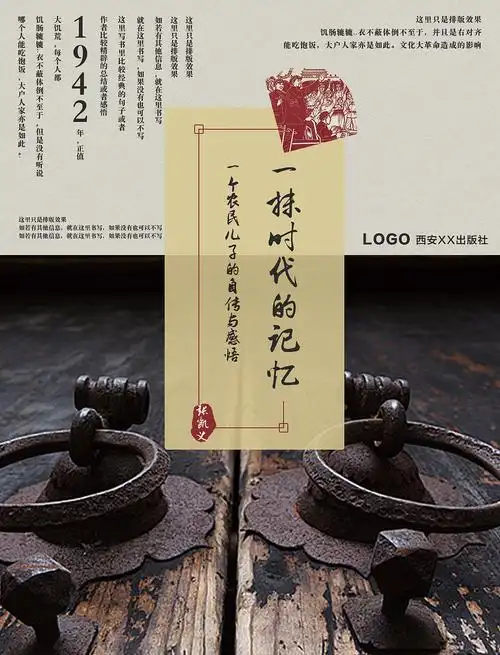 这里只是排版效果
这里只是排版效果
如若有其他信息，就在这里书写
就在这里书写，如果没有也可以不写
这里写书里比较经典的句子或者
作者比较精辟的总结或者感悟
1942年，正值
大饥荒，每个人都
饥肠辘辘，衣不蔽体倒不至于，但是没有听说
哪个人能吃饱饭，大户人家亦是如此。
这里只是排版效果
饥肠辘辘，衣不蔽体倒不至于，并且是右对齐
能吃饱饭，大户人家亦是如此。文化大革命造成的影响
这里只是排版效果
如若有其他信息，就在这里书写，如果没有也可以不写
如若有其他信息，就在这里书写，如果没有也可以不写
LOGO 西安XX出版社
一抹时代的记忆
一个农民儿子的自传与感悟
张凯义